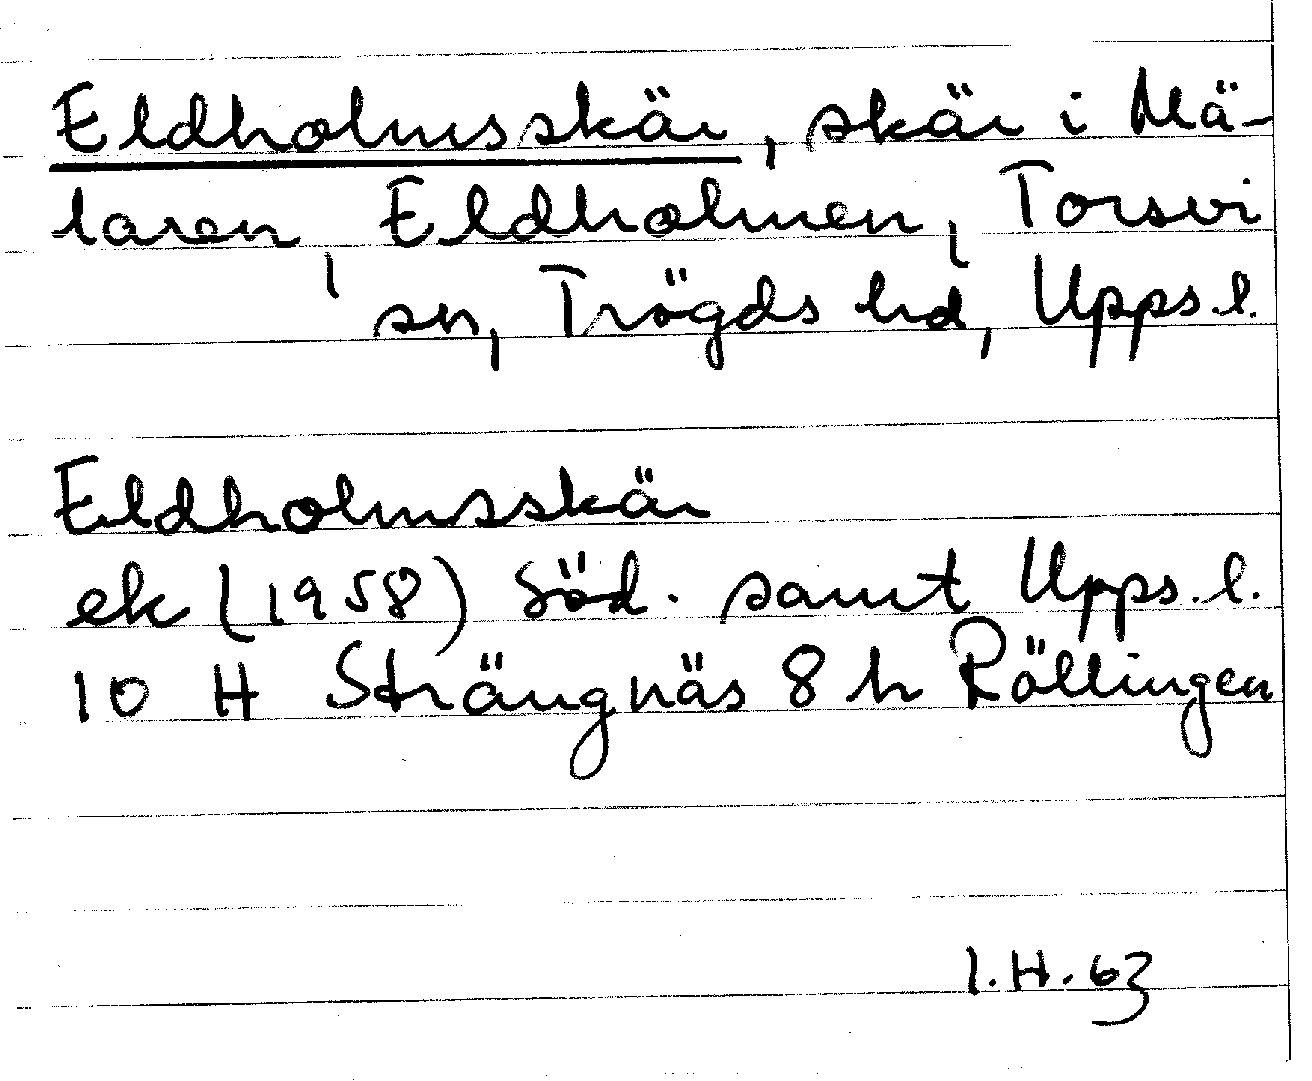 Eldholmsskär, skär i Mä-
laren, Eldholmen, Torsvi
sn, Trögds hd, Upps.l.
Eldholmsskär
ek (1958) Söd. samt Upps.l.
10 H Strängnäs 8 h Rällingen
I.H.63